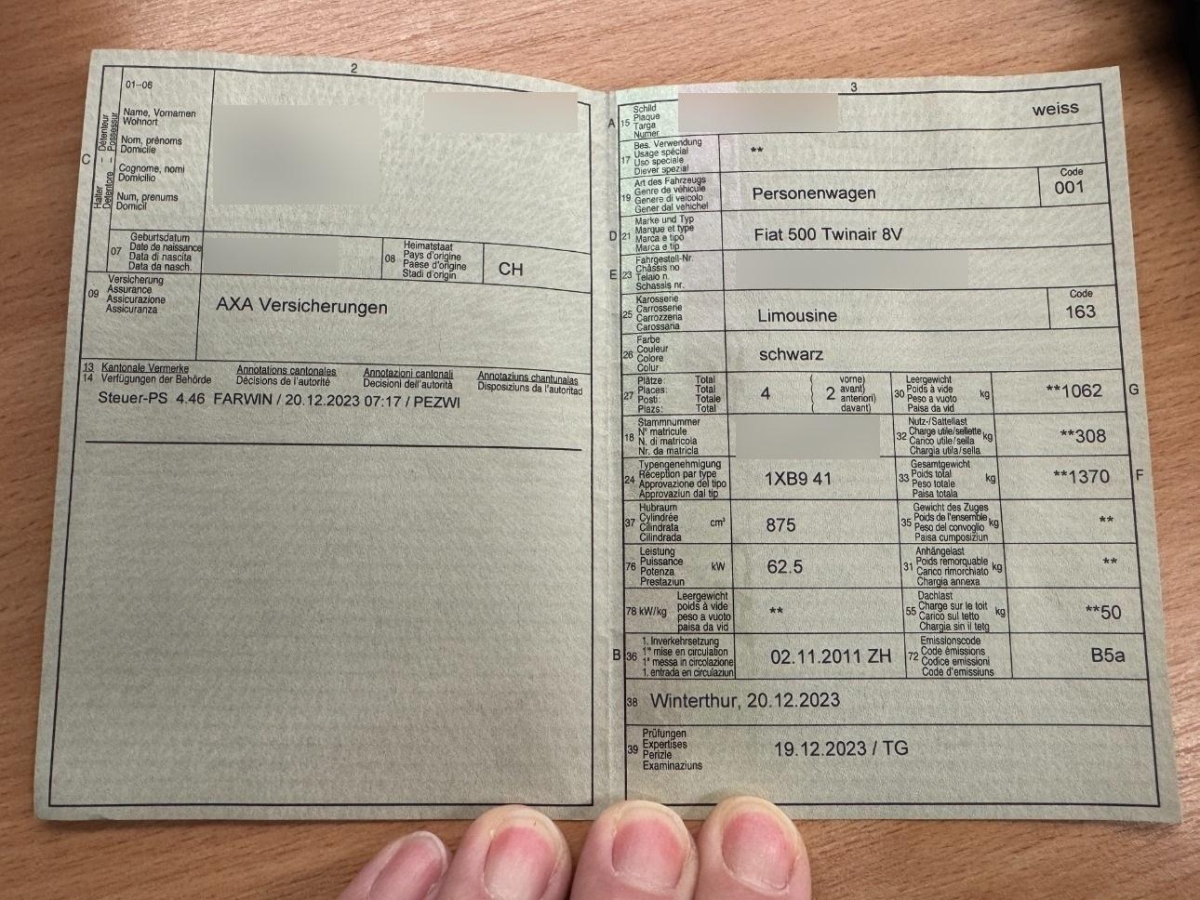 2
01–06
Name, Vornamen
Wohnort
Nom, prénoms
Domicile
Cognome, nomi
Domicilio
Num, prenums
Domicil
C
Halter – Détenteur
Detentore – Possessur
07
Geburtsdatum
Date de naissance
Data di nascita
Data da nasch.
08
Heimatstaat
Pays d'origine
Paese d'origine
Stadi d'origin
CH
09
Versicherung
Assurance
Assicurazione
Assicuranza
AXA Versicherungen
13 Kantonale Vermerke Annotations cantonales Annotazioni cantonali Annotaziuns chantunalas
14 Verfügungen der Behörde Décisions de l'autorité Decisioni dell'autorità Disposiziuns da l'autoritad
Steuer-PS 4.46 FARWIN / 20.12.2023 07:17 / PEZWI
3
A
15
Schild
Plaque
Targa
Numer
weiss
17
Bes. Verwendung
Usage spécial
Uso speciale
Diever spezial
**
19
Art des Fahrzeugs
Genre de véhicule
Genere di veicolo
Gener dal vehichel
Personenwagen
Code
001
D
21
Marke und Typ
Marque et type
Marca e tipo
Marca e tip
Fiat 500 Twinair 8V
E
23
Fahrgestell-Nr.
Châssis no
Telaio n.
Schassis nr.
25
Karosserie
Carrosserie
Carrozzeria
Carossaria
Limousine
Code
163
26
Farbe
Couleur
Colore
Colur
schwarz
27
Plätze: Total
Places: Total
Posti: Totale
Plazs: Total
4
( 2 vorne)
avant)
anteriori)
davant)
30
Leergewicht
Poids à vide
Peso a vuoto
Paisa da vid
kg
**1062
G
18
Stammnummer
N° matricule
N. di matricola
Nr. da matricla
32
Nutz-/Sattellast
Charge utile/sellette
Carico utile/sella
Chargia utila/sella
kg
**308
24
Typengenehmigung
Réception par type
Approvazione del tipo
Approvaziun dal tip
1XB9 41
33
Gesamtgewicht
Poids total
Peso totale
Paisa totala
kg
**1370
F
37
Hubraum
Cylindrée
Cilindrata
Cilindrada
cm³
875
35
Gewicht des Zuges
Poids de l'ensemble
Peso del convoglio
Paisa cumposiziun
kg
**
76
Leistung
Puissance
Potenza
Prestaziun
kW
62.5
31
Anhängelast
Poids remorquable
Carico rimorchiato
Chargia annexa
kg
**
78 kW/kg
Leergewicht
poids à vide
peso a vuoto
paisa da vid
**
55
Dachlast
Charge sur le toit
Carico sul tetto
Chargia sin il tetg
kg
**50
B
36
1. Inverkehrsetzung
1re mise en circulation
1a messa in circolazione
1. entrada en circulaziun
02.11.2011 ZH
72
Emissionscode
Code émissions
Codice emissioni
Code d'emissiuns
B5a
38 Winterthur, 20.12.2023
39
Prüfungen
Expertises
Perizie
Examinaziuns
19.12.2023 / TG